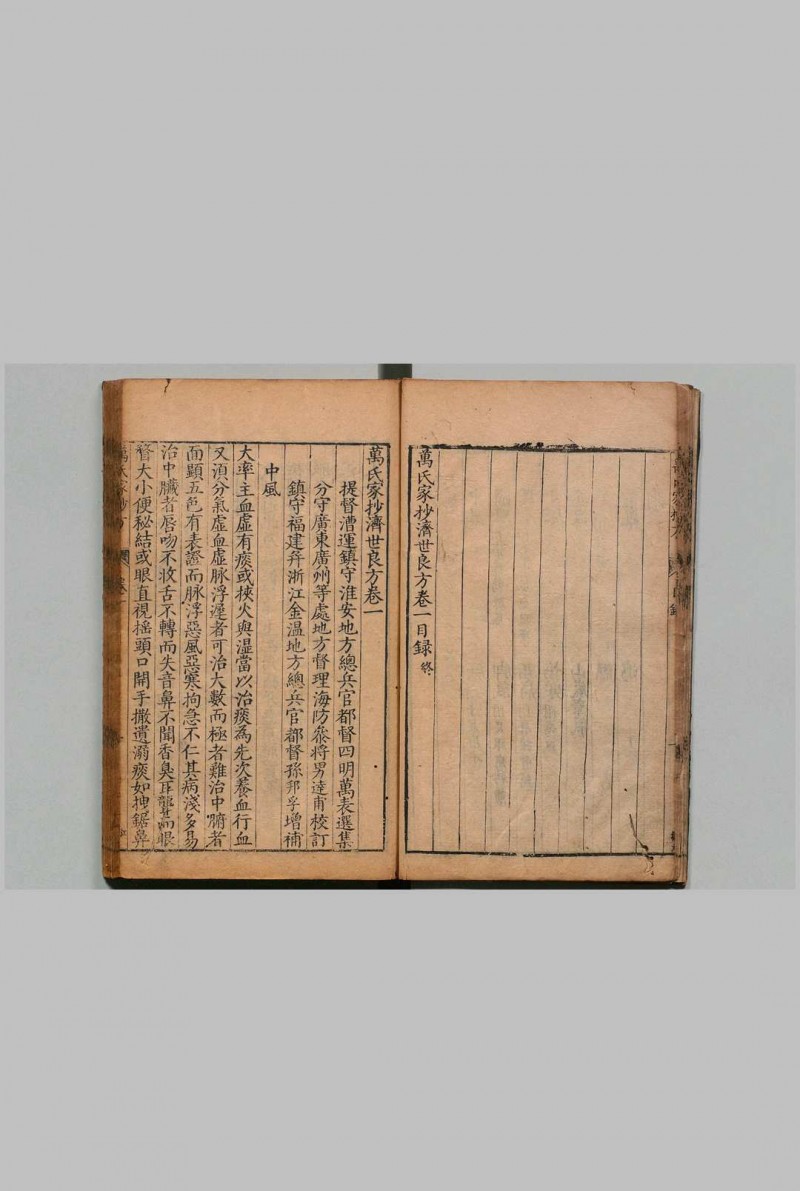 萬氏家抄濟世良方卷一目録終
萬氏家抄濟世良方卷一
提督漕運鎮守淮安地方總兵官都督四明萬表選集
分守廣東廣州等處地方督理海防叅將男達甫校訂
鎮守福建并浙江金溫地方總兵官都督孫邦孚增補
中風
大率主血虛有痰或挾火與濕當以治痰為先次養血行血
又湏分氣虛血虛脉浮遲者可治大數而極者難治中腑者
面顯五色有表證而脉浮惡風惡寒拘急不仁其病淺多易
治中臟者唇吻不收舌不轉而失音鼻不聞香臭耳聾而眼
瞀大小便秘結或眼直視揺頭口開手撒遺溺痰如拽鋸鼻